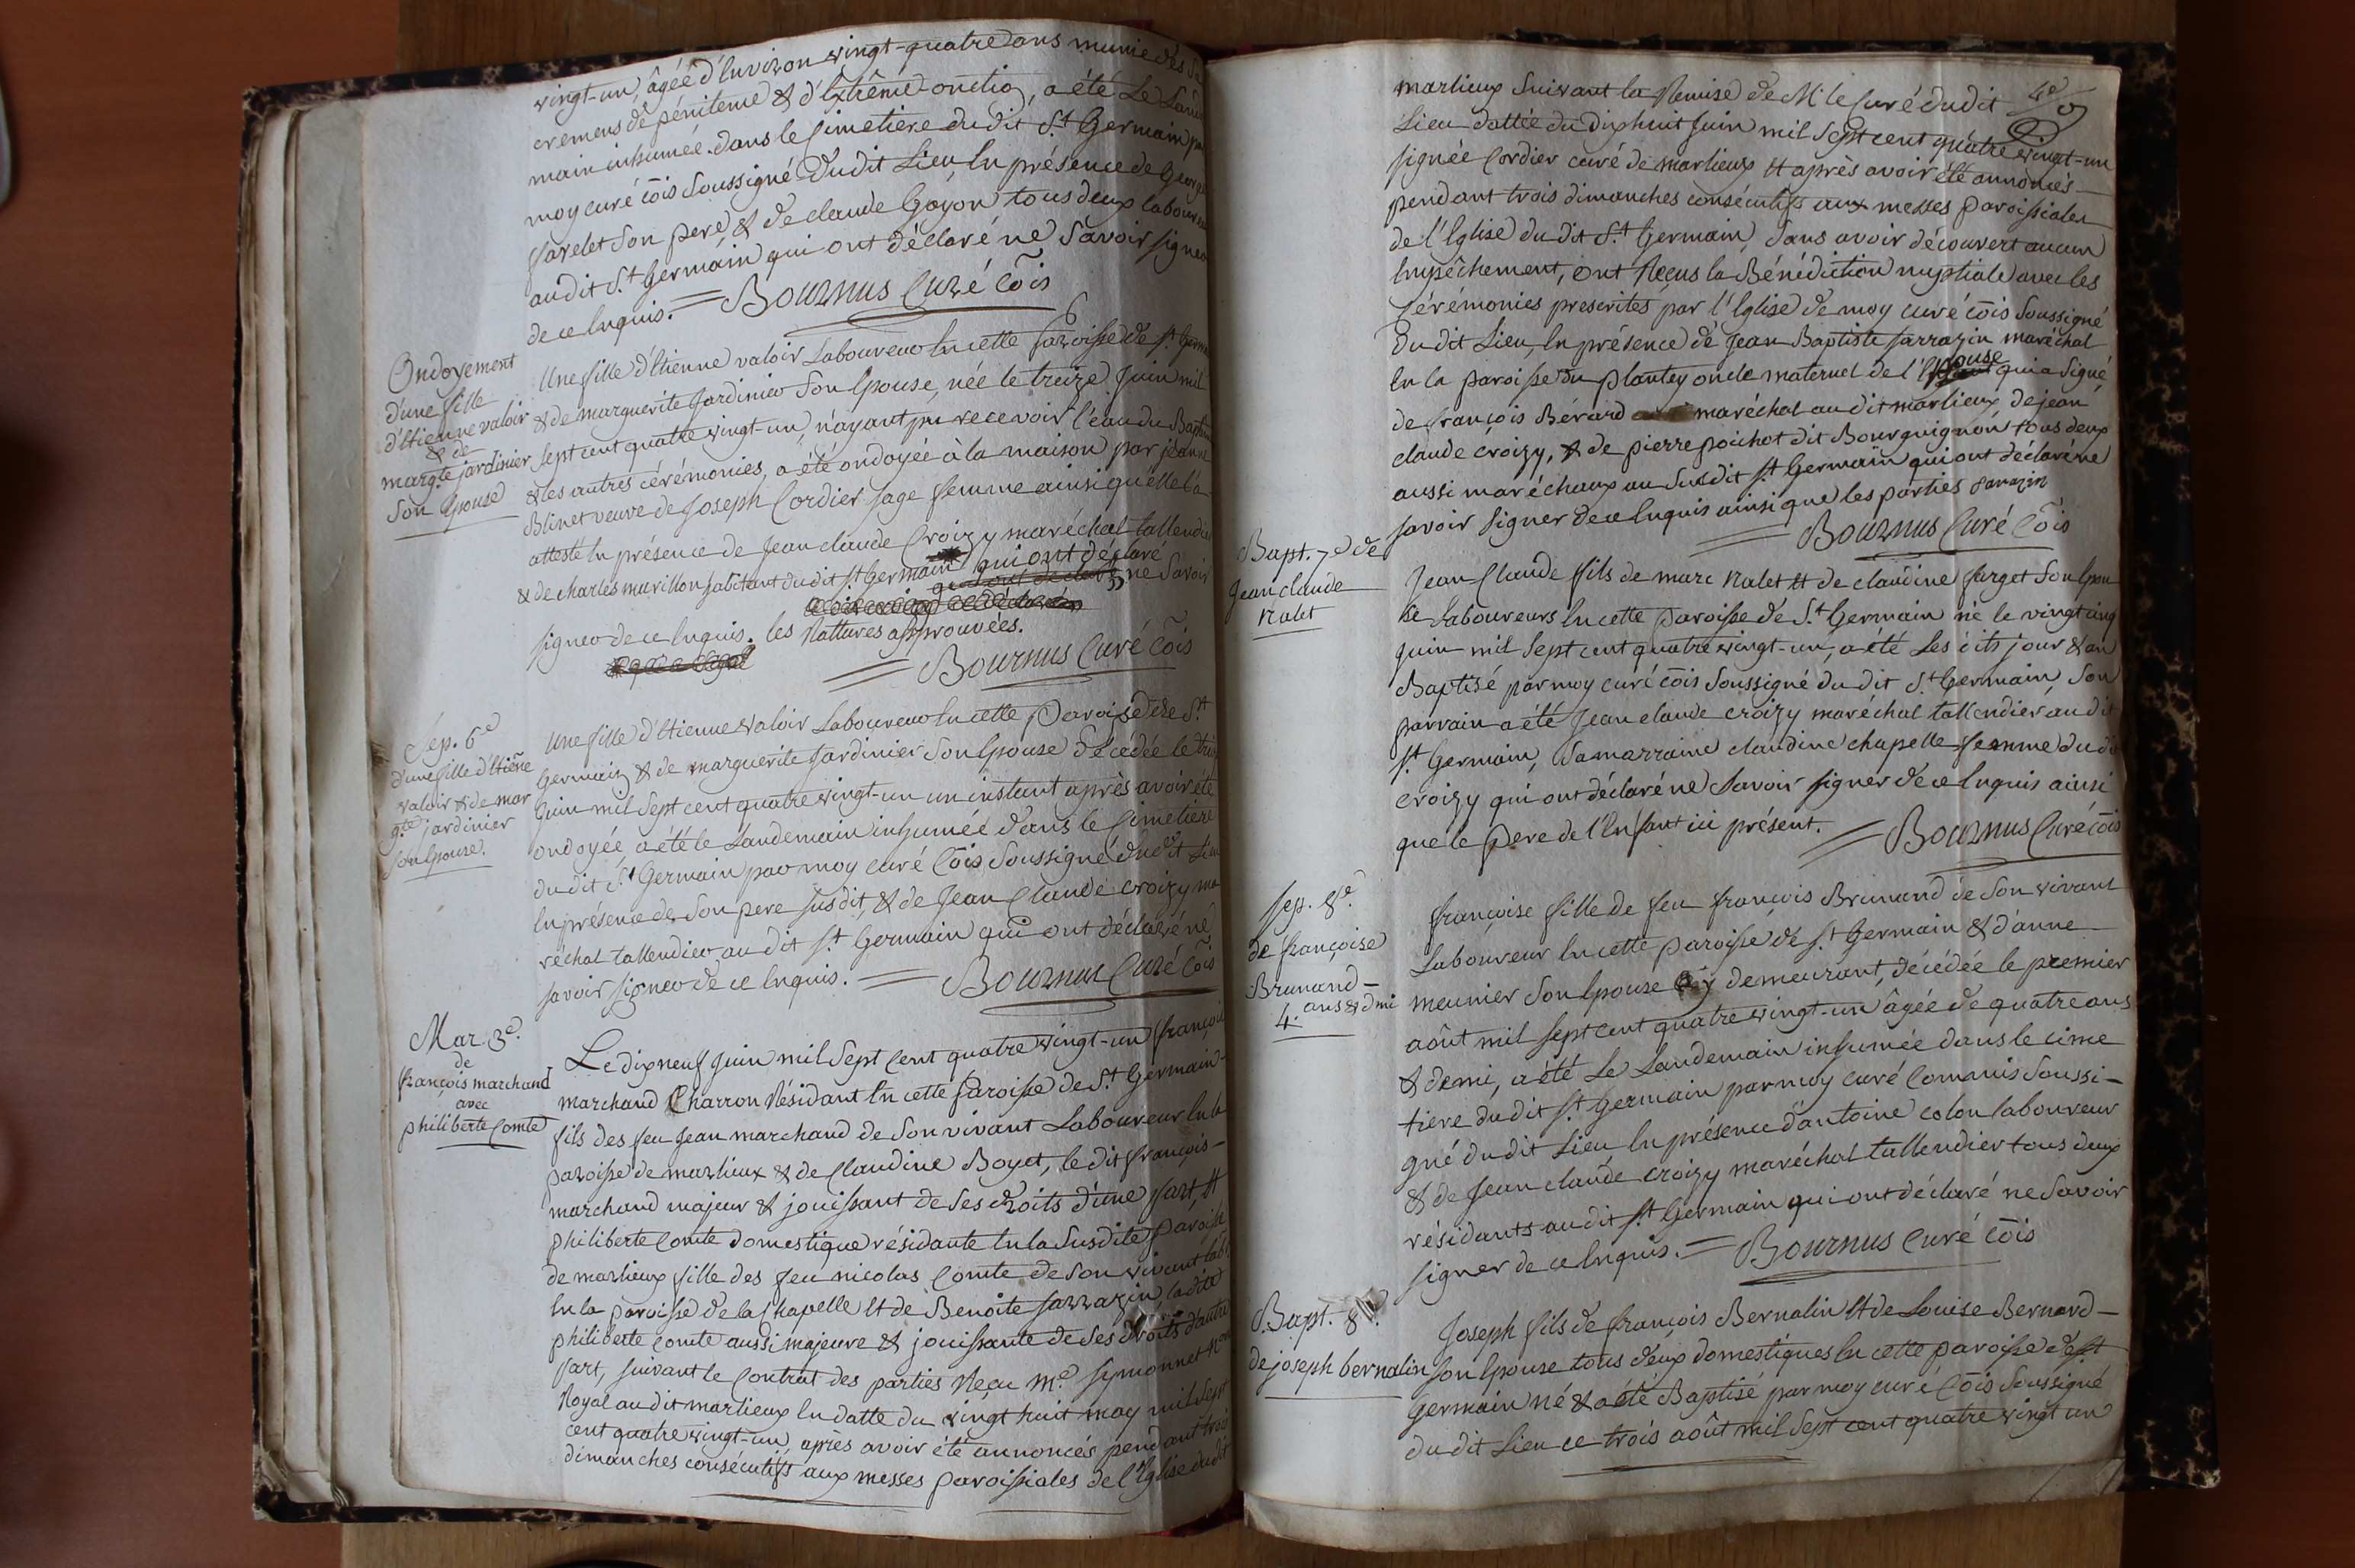 vingt-un, âgée d'Environ vingt-quatre ans munie des Sa
cremens de pénitence & d'Extrême-onctio, a été Le Lande
main inhumée dans le Cimetiere du dit St Germain par
moy curé cõis Soussigné du dit Lieu, En présence de George
farelet Son pere, & de claude Goyon tous deux laboureurs
au dit St Germain qui ont déclaré ne Savoir signer
de ce Enquis. = Bournus Curé Cõis
Ondoyement
d'une fille
d'Etienne valoir
& de
margte jardinier
Son Epouse
Une fille d'Etienne valoir Laboureur En cette Paroisse de St Germain
& de marguerite Jardinier Son Epouse, née le treize Juin mil
Sept cent quatre vingt-un, n'ayant pu recevoir l'eau du Baptême
& les autres cérémonies, a été ondoyée à la maison par jeanne
Blinet veuve de Joseph Cordier sage femme ainsi qu'elle l'a
attesté En présence de Jean claude Croizy maréchal tallendier
& de charles marillon habitant du dit St Germain qui ont déclaré
ne Savoir
signer de ce Enquis. les Rattures approuvées.
Bournus Curé Cõis
Sép. 6e
d'une fille d'Etiẽne
valoir & de mar
gte jardinier
son Epouse.
Une fille d'Etienne valoir Laboureur En cette Paroisse de St
Germain & de marguerite Jardinier Son Epouse décédée le treize
Juin mil Sept cent quatre vingt-un un instant après avoir été
ondoyée a été le Landemain inhumée dans le Cimetiere
du dit St Germain par moy curé Cõis Soussigné du dit Lieu
En présence de Son pere susdit, & de Jean Claude croizy ma
réchal tallendier au dit St Germain qui ont déclaré ne
savoir signer de ce Enquis. = Bournus Curé Cõis
Mar. 3e.
de
françois marchand
avec
philiberte Comte
Le dix neuf Juin mil Sept Cent quatre vingt-un françois
marchand Charron Résidant En cette Paroisse de St Germain
fils des feu Jean marchand de Son vivant Laboureur En la
paroisse de marlieux & de Claudine Boyet, le dit françois
marchand majeur & jouissant de Ses droits d'une part, Et
philiberte Comte domestique résidante En la Susdite Paroisse
de marlieux fille des feu nicolas Comte de Son vivant Labr
En la paroisse de la Chapelle Et de Benoîte Sarrazin la dite
philiberte Comte aussi majeure & jouissante de Ses droits d'autre
part, suivant le Contrat des parties Reçu Me. Symonnet Nre
Royal au dit marlieux En datte du vingt huit may mil Sept
cent quatre vingt-un, après avoir été annoncés pendant trois
dimanches consécutifs aux messes paroissiales de l'Eglise du dit
marlieux Suivant la Remise de Mr le Curé du dit
4e
Lieu dattée du dix huit Juin mil Sept cent quatre vingt-un
signée Cordier curé de marlieux Et après avoir été annoncés
pendant trois dimanches consécutifs aux messes Paroissiales
de l'Eglise du dit St Germain, Sans avoir découvert aucun
Empêchement, ont Reçus la Bénédiction nuptiale avec les
Cérémonies prescrites par l'Eglise de moy curé cõis Soussigné
du dit Lieu, En présence de Jean Baptiste Sarrazin maréchal
En la paroisse du plantey oncle maternel de l'Epouse qui a Signé
de françois Bérard maréchal au dit marlieux, de jean
claude croizy, & de pierre poichot dit Bourguignon tous deux
aussi maréchaux au Susdit St Germain qui ont déclaré ne
savoir signer de ce Enquis ainsi que les parties Sarrazin
Bournus Curé Cõis
Bapt. 7e de
Jean claude
Nalet
Jean Claude fils de marc Nalet Et de claudine farget Son Epou
se Laboureurs En cette Paroisse de St Germain né le vingt cinq
juin mil Sept cent quatre vingt-un, a été Les dits jour & an
Baptisé par moy curé cõis Soussigné du dit St Germain, Son
parrain a été Jean claude croizy maréchal tallendier au dit
St Germain, Sa marraine claudine chapelle femme du dit
croizy qui ont déclaré ne Savoir signer de ce Enquis ainsi
que le Pere de l'Enfant ici présent. = Bournus Curé cõis
Sep. 8e.
de françoise
Brunand
4. ans & dmi
françoise fille de feu françois Brunand de Son vivant
Laboureur En cette paroisse de St Germain & d'anne
meunier Son Epouse y demeurant, décédée le premier
août mil Sept cent quatre vingt-un âgée de quatre ans
& demi, a été Le Landemain inhumée dans le cime
tiere du dit St Germain par moy curé Commis Soussi-
gné du dit Lieu, En présence d'antoine colon laboureur
& de Jean claude croizy maréchal tallendier tous deux
résidants au dit St Germain qui ont déclaré ne Savoir
signer de ce Enquis. = Bournus Curé Cõis
Bapt. 8e.
de joseph bernalin
Joseph fils de françois Bernalin Et de Louise Bernard
son Epouse tous deux domestiques En cette paroisse de St
Germain né & a été Baptisé par moy curé Cõis Soussigné
du dit Lieu ce trois août mil Sept cent quatre vingt un